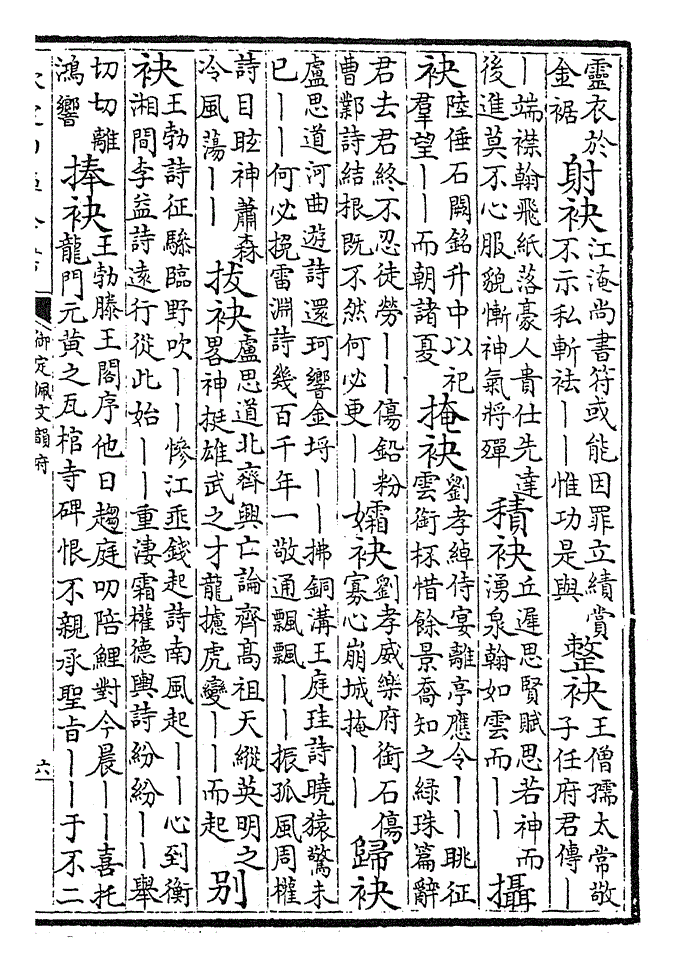 靈衣於金裾射袂江淹尚書符或能因罪立績賞不示私斬袪丨丨惟功是與整袂王僧孺太常敬子任府君傳丨
丨端襟翰飛紙落豪人貴仕先達後進莫不心服貌慚神氣將殫積袂丘遲思賢賦思若神而湧泉翰如雲而丨丨攝
袂陸倕石闕銘升中以祀羣望丨丨而朝諸夏掩袂劉孝綽侍宴離亭應令丨丨眺征雲銜杯惜餘景喬知之綠珠篇辭
君去君終不忍徒勞丨丨傷鉛粉曹鄴詩結根既不然何必更丨丨孀袂劉孝威樂府銜石傷寡心崩城掩丨丨歸袂
盧思道河曲遊詩還珂響金埒丨丨拂銅溝王庭珪詩曉猿驚未已丨丨何必挽雷淵詩幾百千年一敬通飄飄丨丨振孤風周權
詩目眩神蕭森冷風蕩丨丨拔袂盧思道北齊興亡論齊高祖天縱英明之畧神挺雄武之才龍攄虎變丨丨而起别
袂王勃詩征驂臨野吹丨丨慘江垂錢起詩南風起丨丨心到衡湘間李益詩遠行從此始丨丨重淒霜權德輿詩紛紛丨丨舉
切切離鴻響捧袂王勃滕王閣序他日趨庭叨陪鯉對今晨丨丨喜托龍門元黄之瓦棺寺碑恨不親承聖旨丨丨于不二
御定佩文韻府
六